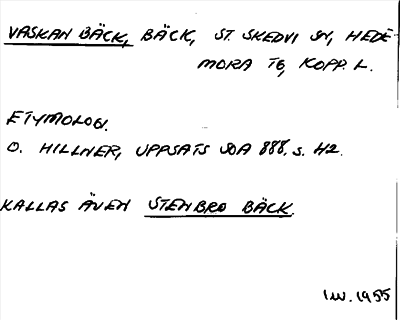 VASKAN BÄCK, BÄCK, ST. SKEDVI SN, HEDE-
MORA TG, KOPP. L.
ETYMOLOGI.
O. HILLNER, UPPSATS SOA 888, S. 42.
KALLAS ÄVEN STENBRO BÄCK.
I.W. 1955